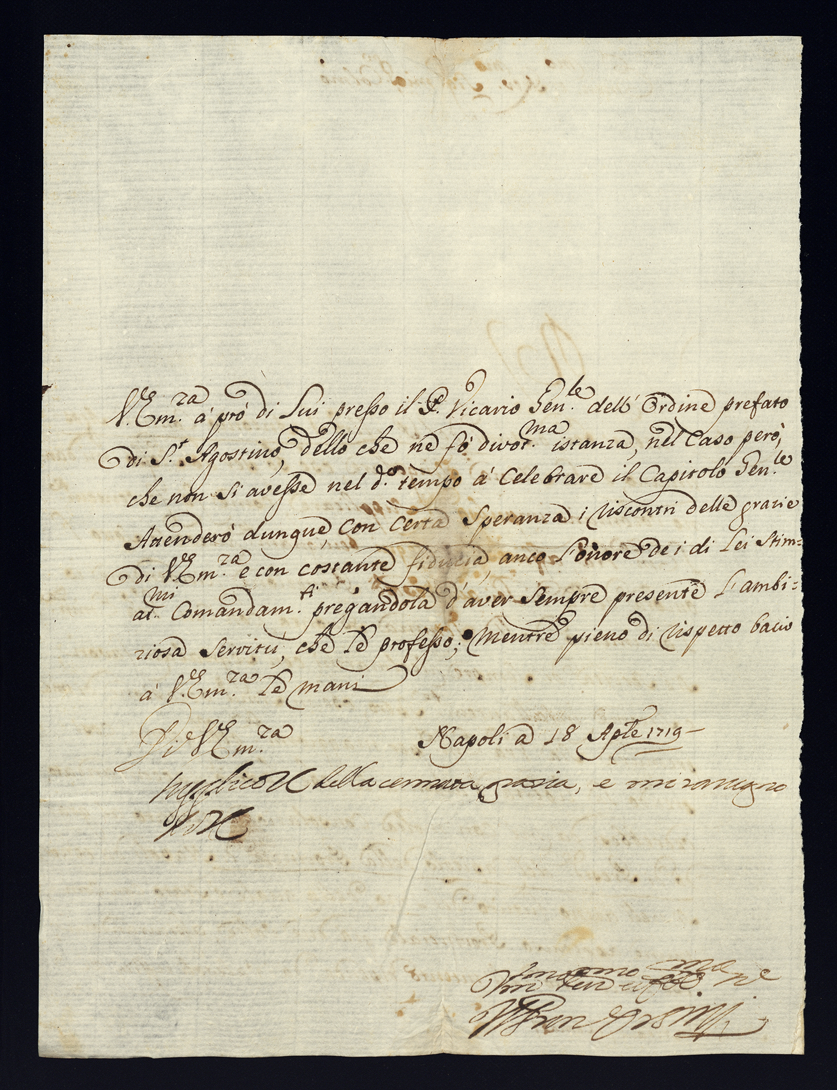 V. Em.za à prò di Lui presso il P. Vicario Gen.le dell'Ordine prefato
di S.t Agostino, dello che ne fò divot.ma istanza, nel Caso però,
che non si avesse nel d.o tempo à Celebrare il Capitolo Gen.le
Attenderò dunque con certa Speranza i riscontri delle grazie
di V. Em.za e con costante fiducia, anco l'onore de i di Lei Stim=
at.mi Comandam.ti pregandola d'aver sempre presente l'ambi=
ziosa servitù, che le professo; Mentre pieno di rispetto bacio
à V. Em.za le mani
Di V. Em.za
Napoli à 18 Ap.le 1719
della cennata grazia, e mi rassegno